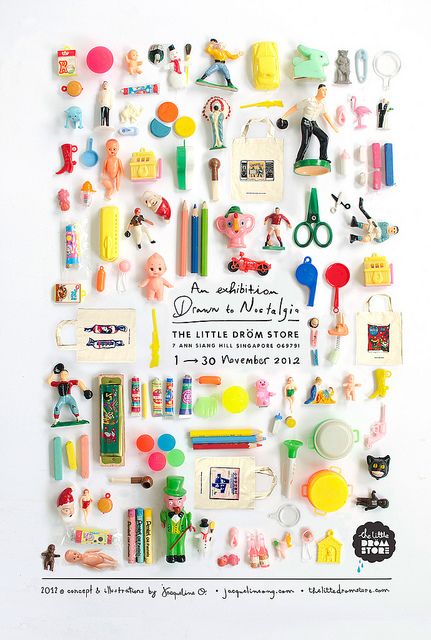 An exhibition
Drawn to Nostalgia
THE LITTLE DRÖM STORE
7 ANN SIANG HILL SINGAPORE 069791
1 → 30 November 2012
the little
DRÖM
STORE
2012 © concept & illustrations by Jacqueline G. • jacquelinegng.com • thelittledromstore.com